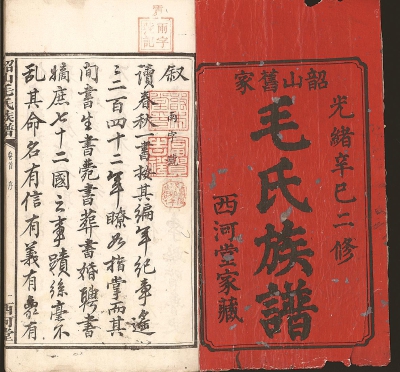 韶山舊家
光緒辛巳二修
毛氏族譜
西河堂家藏
叙
讀春秋一書按其編年紀事遙
三百四十二年瞭如指掌而其
間書生書薨書葬書婚聘書
嫡庶七十二國之事蹟絲毫不
亂其命名有信有義有象有
韶山毛氏族譜
卷首 序
一 西河堂